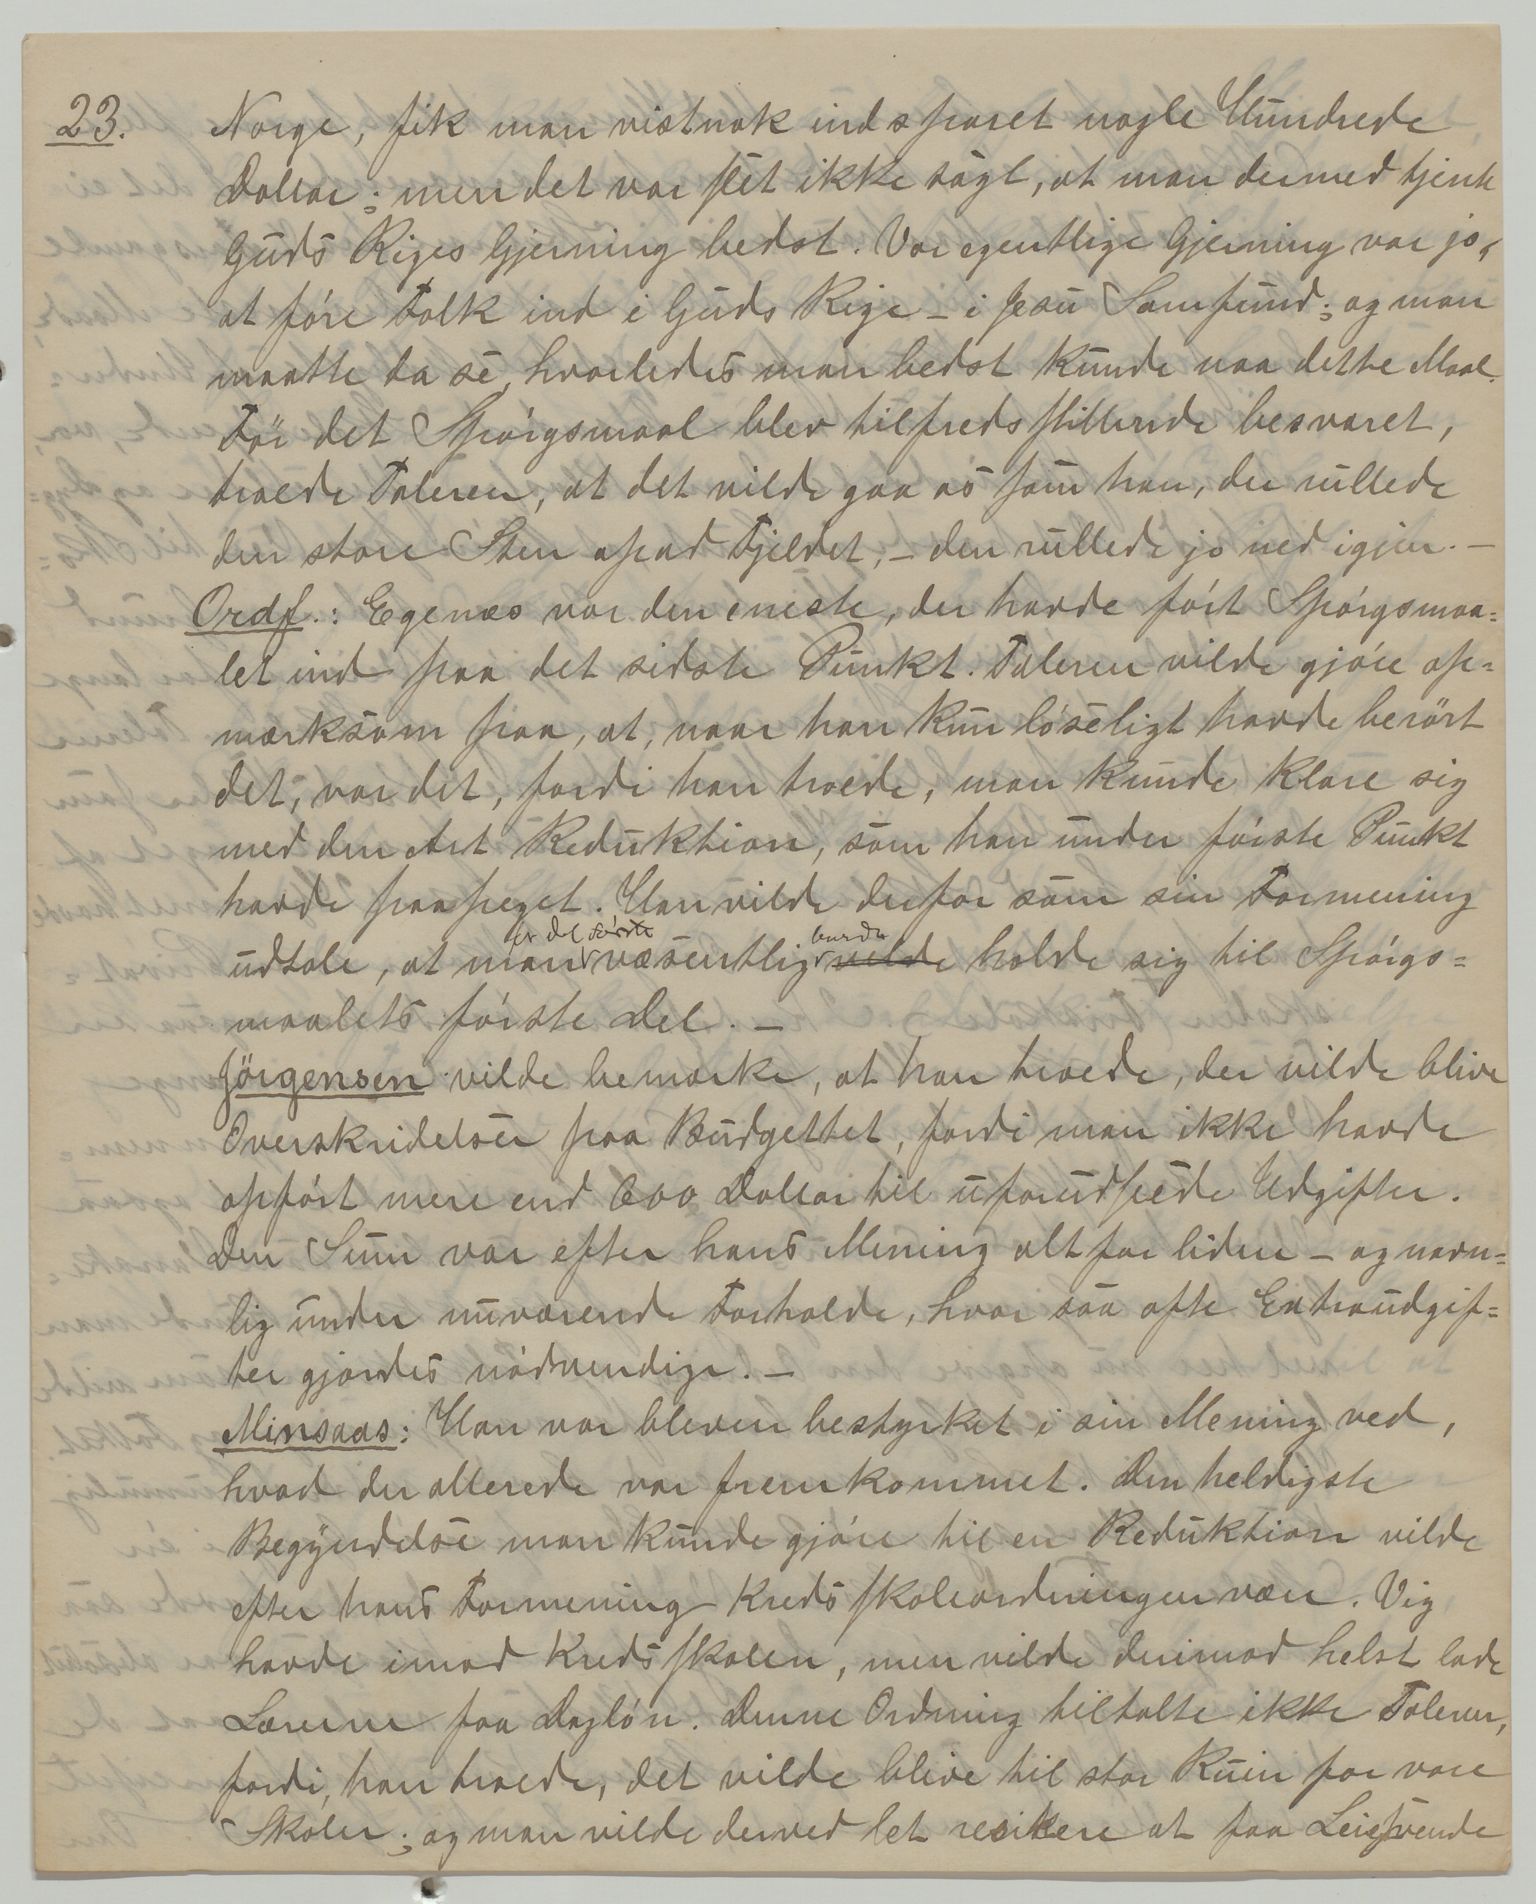 23. Norge, fik man vistnok indsparet nogle Hundrede
Dollar; men det var slet ikke sagt, at man dermed tjente
Guds Riges Gjerning bedst. Vor egentlige Gjerning var jo,
at føre Folk ind i Guds Rige – i Jesu Samfund; og man
maatte da se, hvorledes man bedst kunde naa dette Maal.
Før det Spørgsmaal blev tilfredsstillende besvaret,
troede Taleren, at det vilde gaa os som han, der rullede
den store Sten opad Fjeldet, – den rullede jo ned igjen. –
Ordf.: Egenæs var den eneste, der havde ført Spørgsmaa=
let ind paa det sidste Punkt. Taleren vilde gjøre op=
mærksom paa, at, naar han kun løseligt havde berørt
det, var det, fordi han troede, man kunde klare sig
med den Art Reduktion, som han under første Punkt
havde paapeget. Han vilde derfor som sin Formening
udtale, at man væsentlig burde vilde holde sig til Spørgs=
maalets første Del. –
Jørgensen vilde bemærke, at han troede, der vilde blive
Overskridelser paa Budgettet, fordi man ikke havde
opført mere end 600 Dollar til uforudseede Udgifter.
Den Sum var efter hans Mening alt for liden – og navn=
lig under nuværende Forholde, hvor saa ofte Extraudgif=
ter gjordes nødvendige. –
Minsaas: Han var bleven bestyrket i sin Mening ved,
hvad der allerede var fremkommet. Den heldigste
Begyndelse man kunde gjøre til en Reduktion vilde
efter hans Formening Kredsskoleordningen være. Vig
havde imod Kredsskolen, men vilde derimod helst lade
Lærerne faa Dagløn. Denne Ordning tiltalte ikke Taleren,
fordi, han troede, det vilde blive til stor Ruin for vore
Skoler; og man vilde derved let resikere at faa Leiesvende